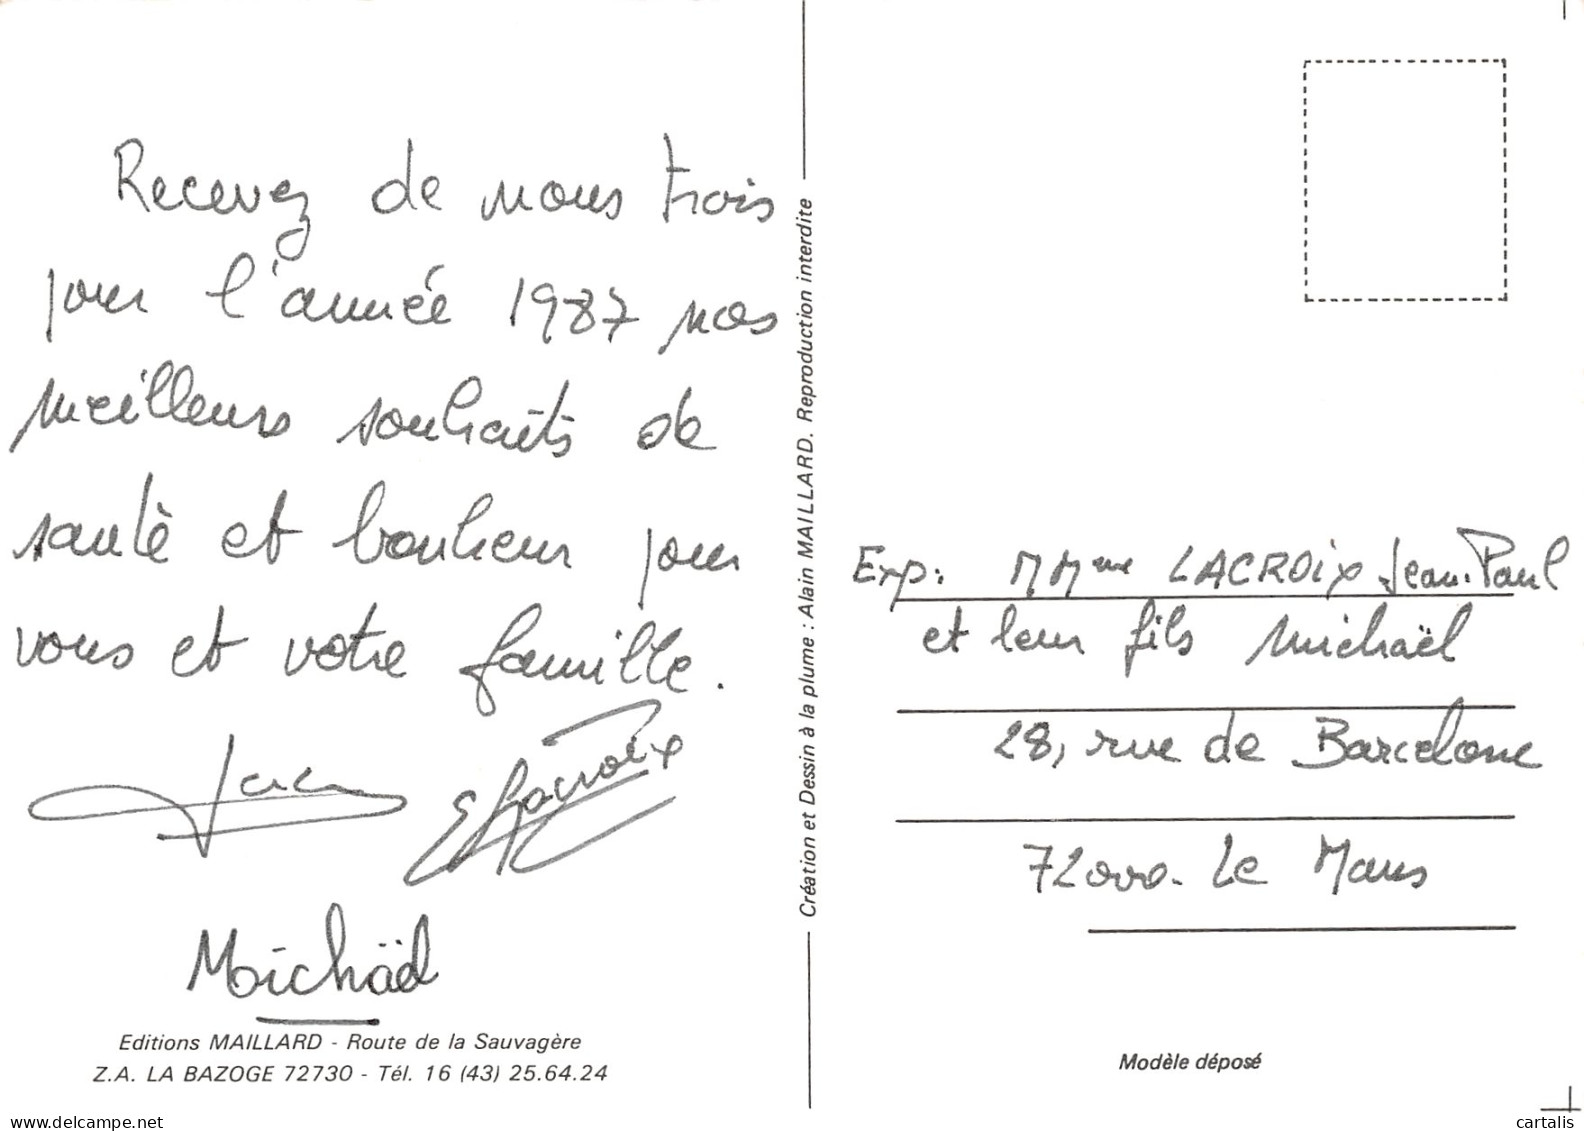 Recevez de nous trois
pour l'année 1987 nos
meilleurs souhaits de
santé et bonheur pour
vous et votre famille.
Lacroix
Michaël
Editions MAILLARD - Route de la Sauvagère
Z.A. LA BAZOGE 72730 - Tél. 16 (43) 25.64.24
Création et Dessin à la plume : Alain MAILLARD. Reproduction interdite
Exp: M Mme LACROIX Jean-Paul
et leur fils Michaël
28, rue de Barcelone
72000. Le Mans
Modèle déposé
delcampe.net
cartalis